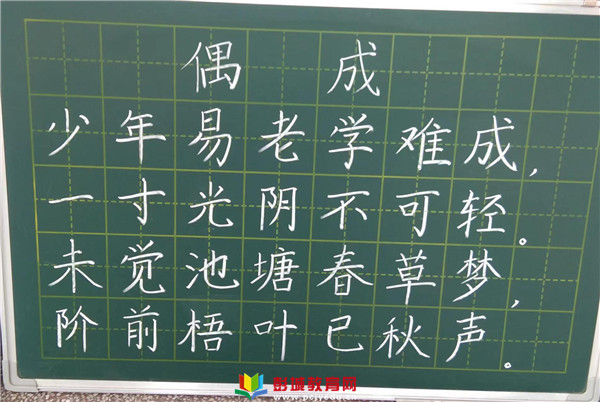 偶 成
少年易老学难成,
一寸光阴不可轻。
未觉池塘春草梦,
阶前梧叶已秋声。